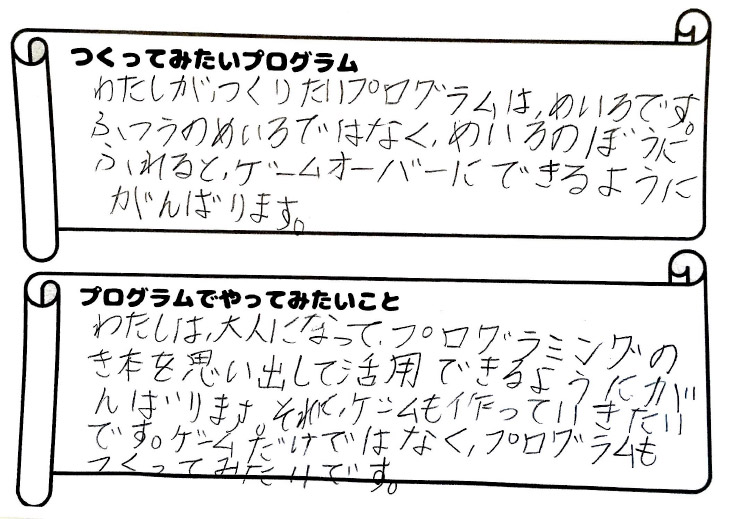 つくってみたいプログラム
わたしがつくりたいプログラムは、めいろです。
ふつうのめいろではなく、めいろのぼうに
ふれると、ゲームオーバーにできるように
がんばります。
プログラムでやってみたいこと
わたしは、大人になって、プログラミングの
き本を思い出して活用できるようにが
んばります。それで、ゲームも作っていきたい
です。ゲームだけではなく、プログラムも
つくってみたいです。